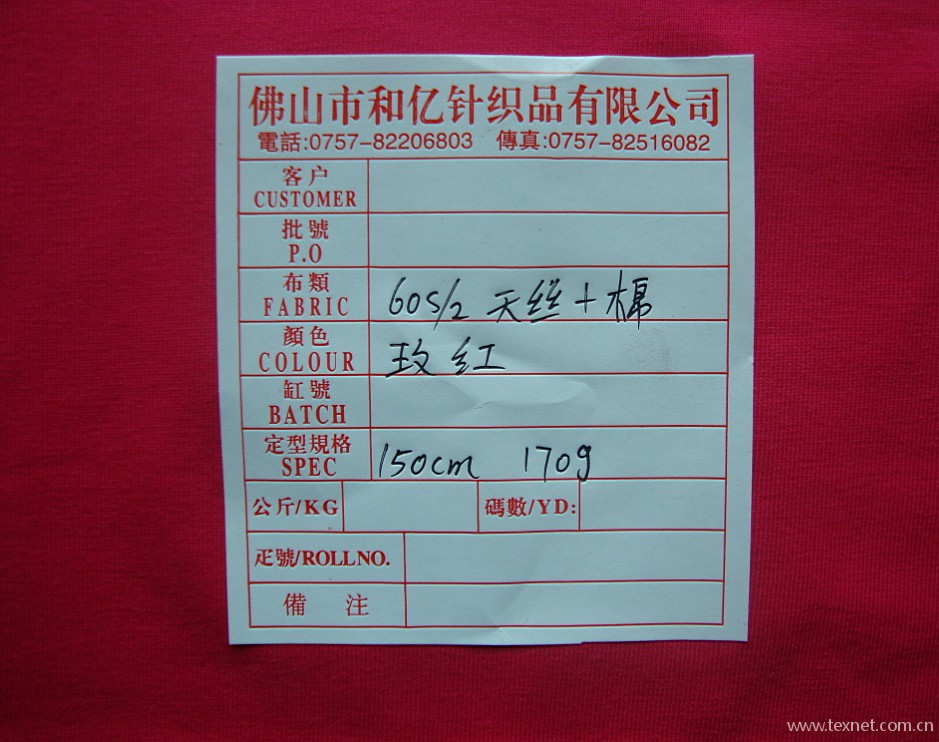 佛山市和亿针织品有限公司
電話:0757-82206803 傳真:0757-82516082
客户
CUSTOMER
批號
P.O
布類
FABRIC
60S/2 天丝+棉
顏色
COLOUR
玫红
缸號
BATCH
定型規格
SPEC
150cm 170g
公斤/KG
碼數/YD:
疋號/ROLLNO.
備 注
www.texnet.com.cn